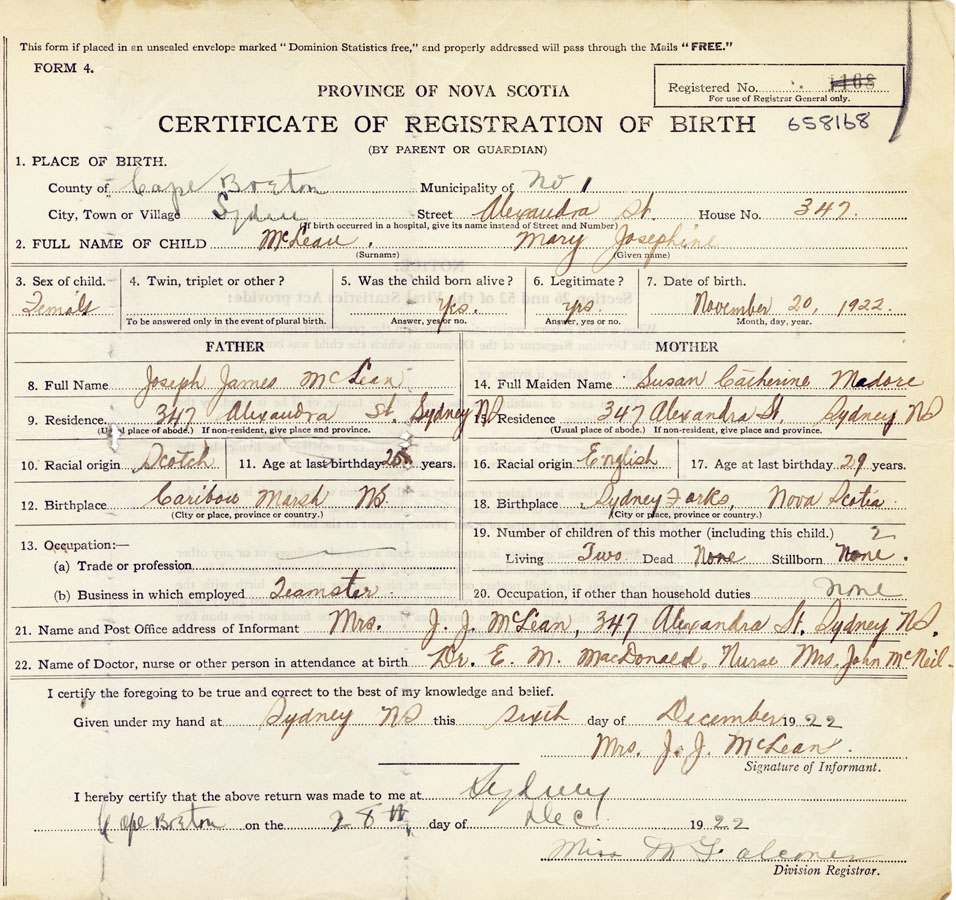 This form if placed in an unsealed envelope marked "Dominion Statistics free," and properly addressed will pass through the Mails "FREE."
FORM 4.
Registered No. 1168
For use of Registrar General only.
PROVINCE OF NOVA SCOTIA
CERTIFICATE OF REGISTRATION OF BIRTH 658168
(BY PARENT OR GUARDIAN)
1. PLACE OF BIRTH.
County of Cape Breton Municipality of No 1
City, Town or Village Sydney Street Alexandra St. House No. 347.
(If birth occurred in a hospital, give its name instead of Street and Number)
2. FULL NAME OF CHILD McLean. Mary Josephine
(Surname) (Given name)
3. Sex of child. 4. Twin, triplet or other? 5. Was the child born alive? 6. Legitimate? 7. Date of birth.
Female Yes. yrs. November 20, 1922.
To be answered only in the event of plural birth. Answer, yes or no. Answer, yes or no. Month, day, year.
FATHER MOTHER
8. Full Name Joseph James McLean 14. Full Maiden Name Susan Catherine Madore
9. Residence 347 Alexandra St. Sydney NS 15. Residence 347 Alexandra St, Sydney NS
(Usual place of abode.) If non-resident, give place and province. (Usual place of abode.) If non-resident, give place and province.
10. Racial origin Scotch 11. Age at last birthday years. 16. Racial origin English 17. Age at last birthday 29 years.
12. Birthplace Caribou Marsh NS. 18. Birthplace Sydney Forks, Nova Scotia
(City or place, province or country.) (City or place, province or country.)
13. Occupation:— 19. Number of children of this mother (including this child.) 2
(a) Trade or profession Living Two. Dead None Stillborn None.
(b) Business in which employed Teamster. 20. Occupation, if other than household duties None
21. Name and Post Office address of Informant Mrs. J. J. McLean, 347 Alexandra St. Sydney NS.
22. Name of Doctor, nurse or other person in attendance at birth Dr. E. M. MacDonald, Nurse Mrs. John McNeil.
I certify the foregoing to be true and correct to the best of my knowledge and belief.
Given under my hand at Sydney NS this sixth day of December 1922
Mrs. J. J. McLean.
Signature of Informant.
I hereby certify that the above return was made to me at Sydney
Cape Breton on the 28th, day of Dec 1922
Miss M Falconer
Division Registrar.